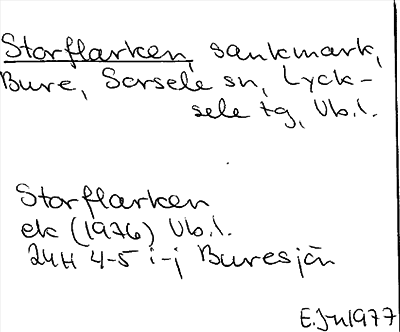 Storflarken, sankmark,
Bure, Sorsele sn, Lyck-
sele tg, Vb.l.
Storflarken
ek (1976) Vb.l.
24H 4-5 i-j Buresjön
E.Jn 1977